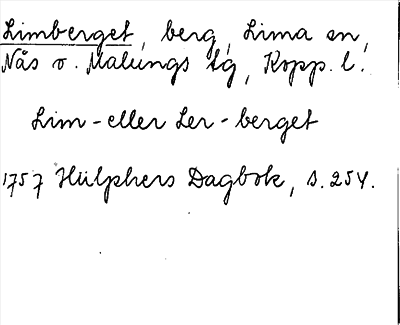 Limberget, berg, Lima sn,
Nås o. Malungs tg, Kopp. l.
Lim - eller Ler - berget
1757 Hülphers Dagbok, s. 254.